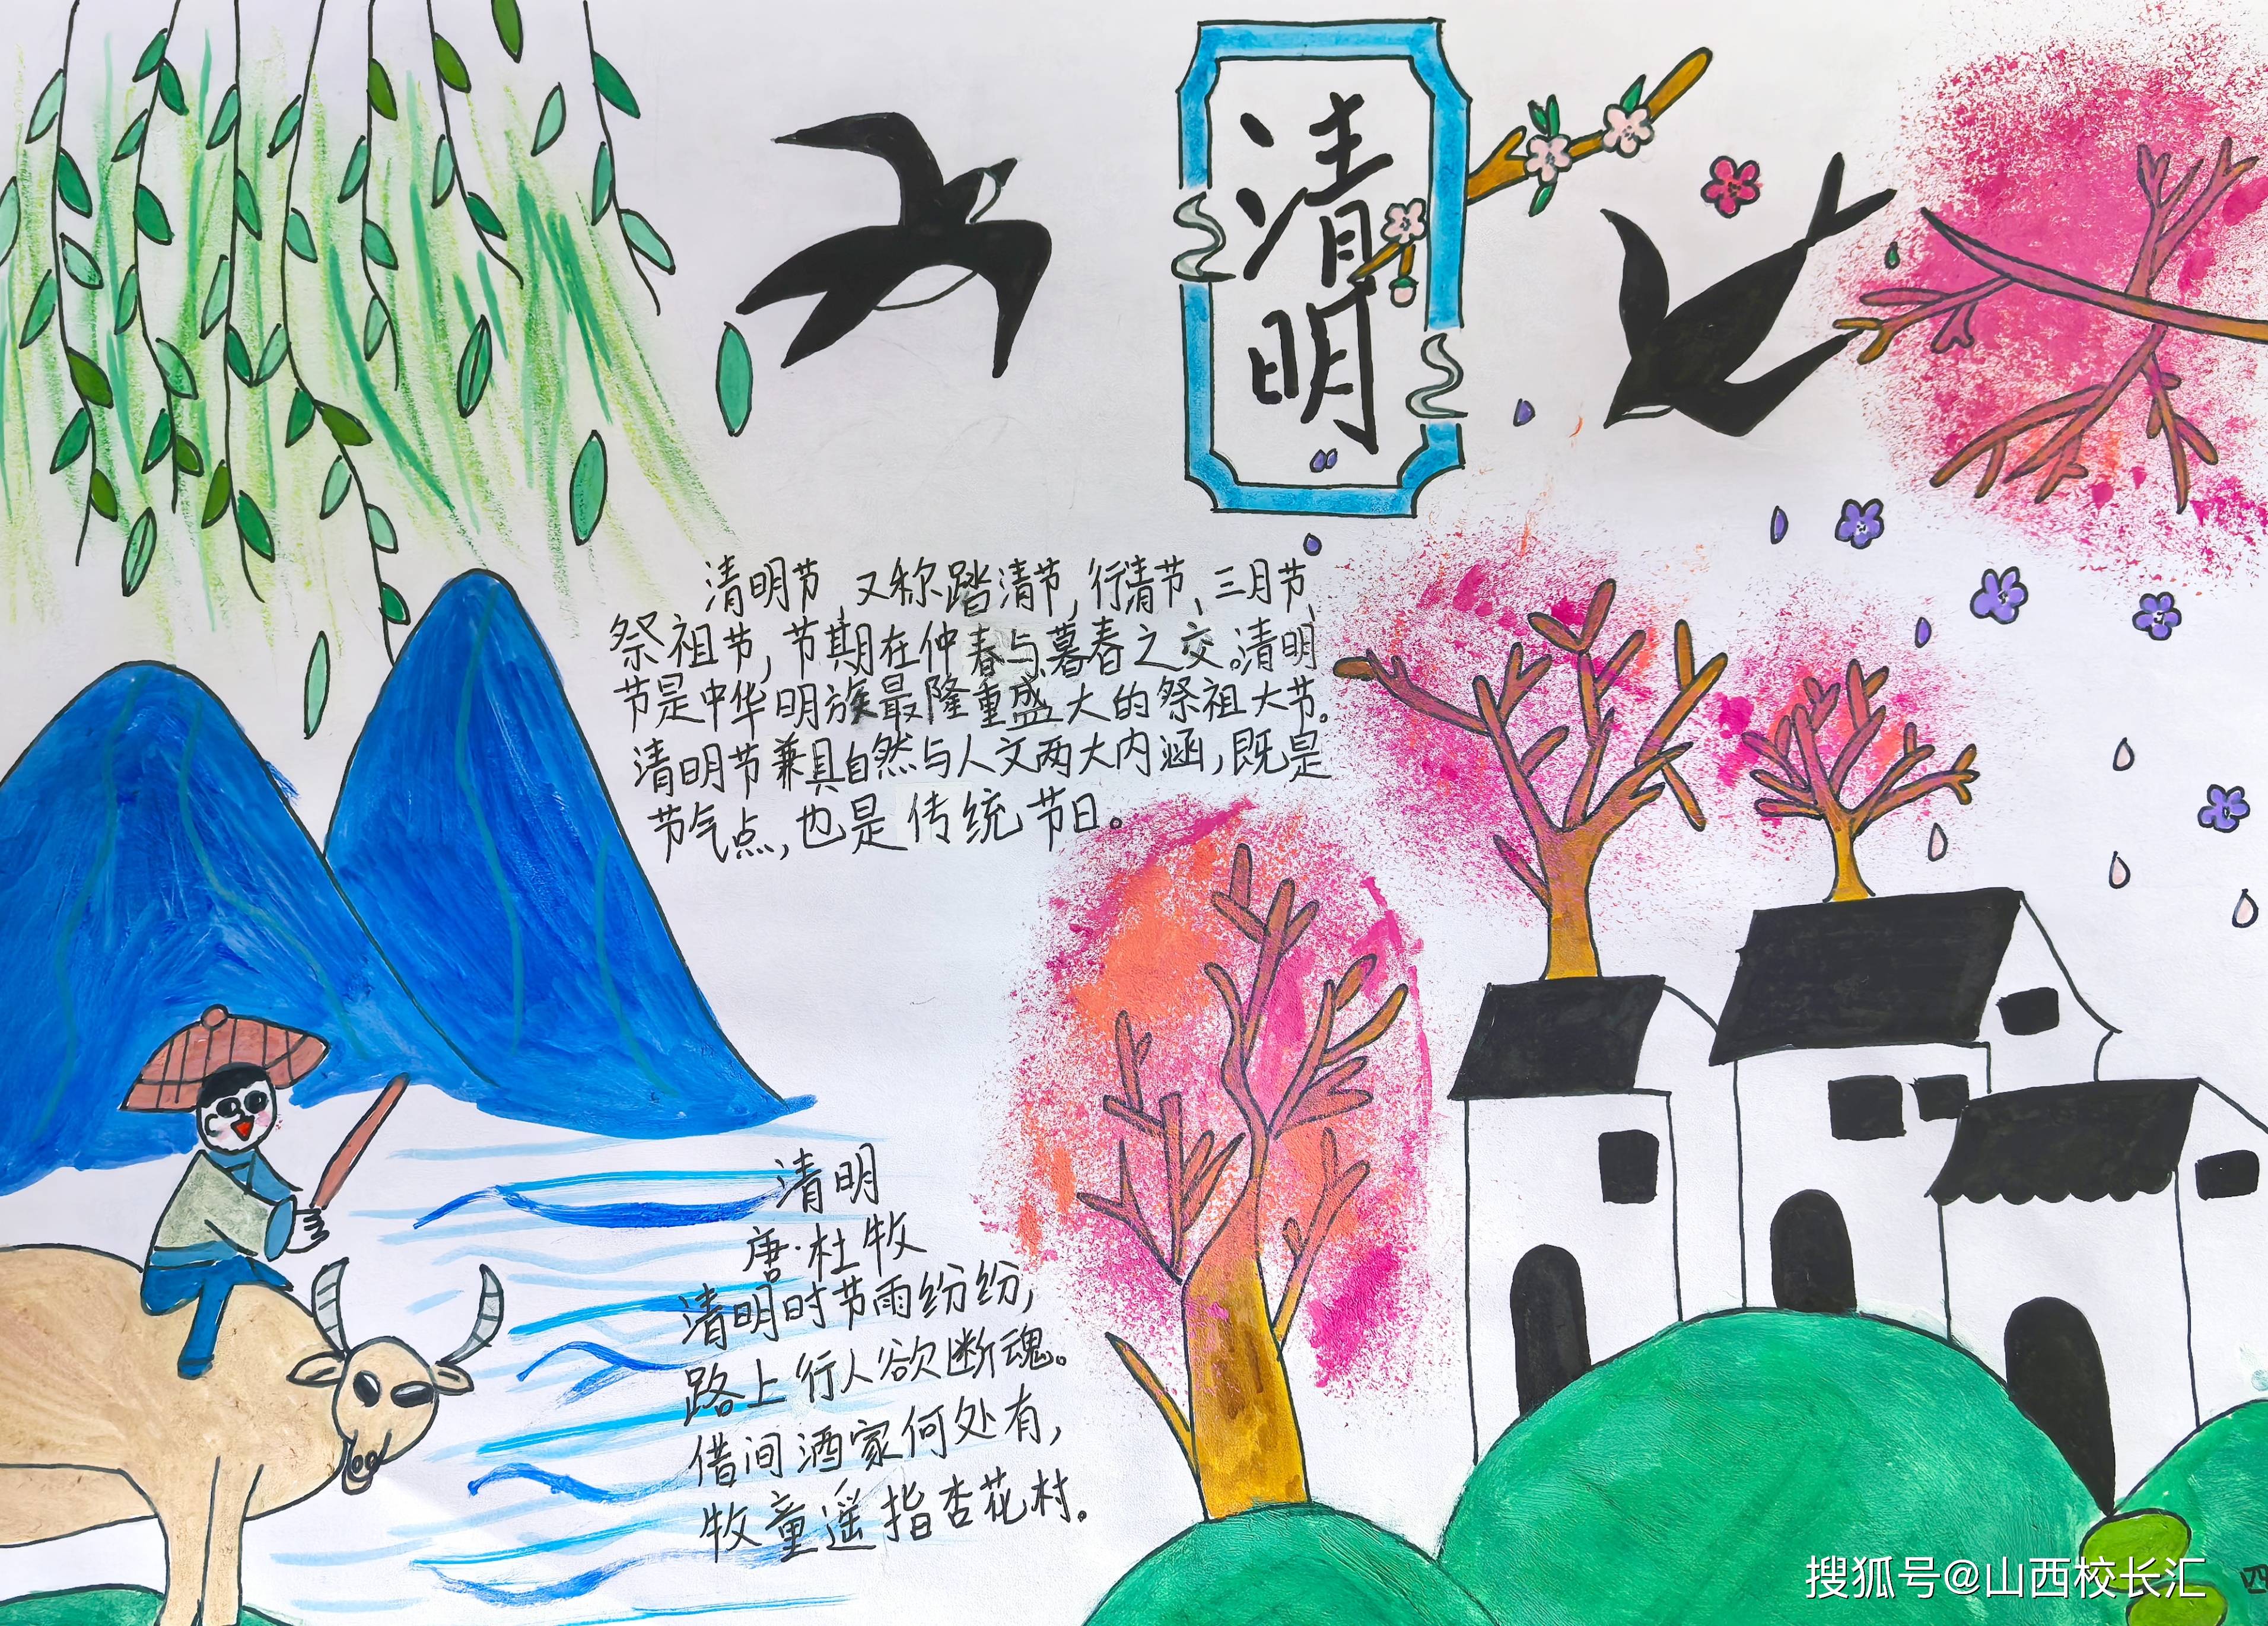 清明
清明节,又称踏清节,行清节、三月节、
祭祖节,节期在仲春与暮春之交。清明
节是中华明族最隆重盛大的祭祖大节。
清明节兼具自然与人文两大内涵,既是
节气点,也是传统节日。
清明
唐·杜牧
清明时节雨纷纷,
路上行人欲断魂。
借间酒家何处有,
牧童遥指杏花村。
搜狐号@山西校长汇